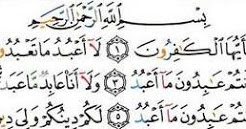 بِسْمِ ٱللَّهِ ٱلرَّحْمَٰنِ ٱلرَّحِيمِ
أَيُّهَا ٱلْكَٰفِرُونَ ١ لَآ أَعْبُدُ مَا تَعْبُدُو
تُمْ عَٰبِدُونَ مَآ أَعْبُدُ ٣ وَلَآ أَنَا۠ عَابِدٌ مَّا عَبَد
تُمْ عَٰبِدُونَ مَآ أَعْبُدُ ٥ لَكُمْ دِينُكُمْ وَلِيَ دِي